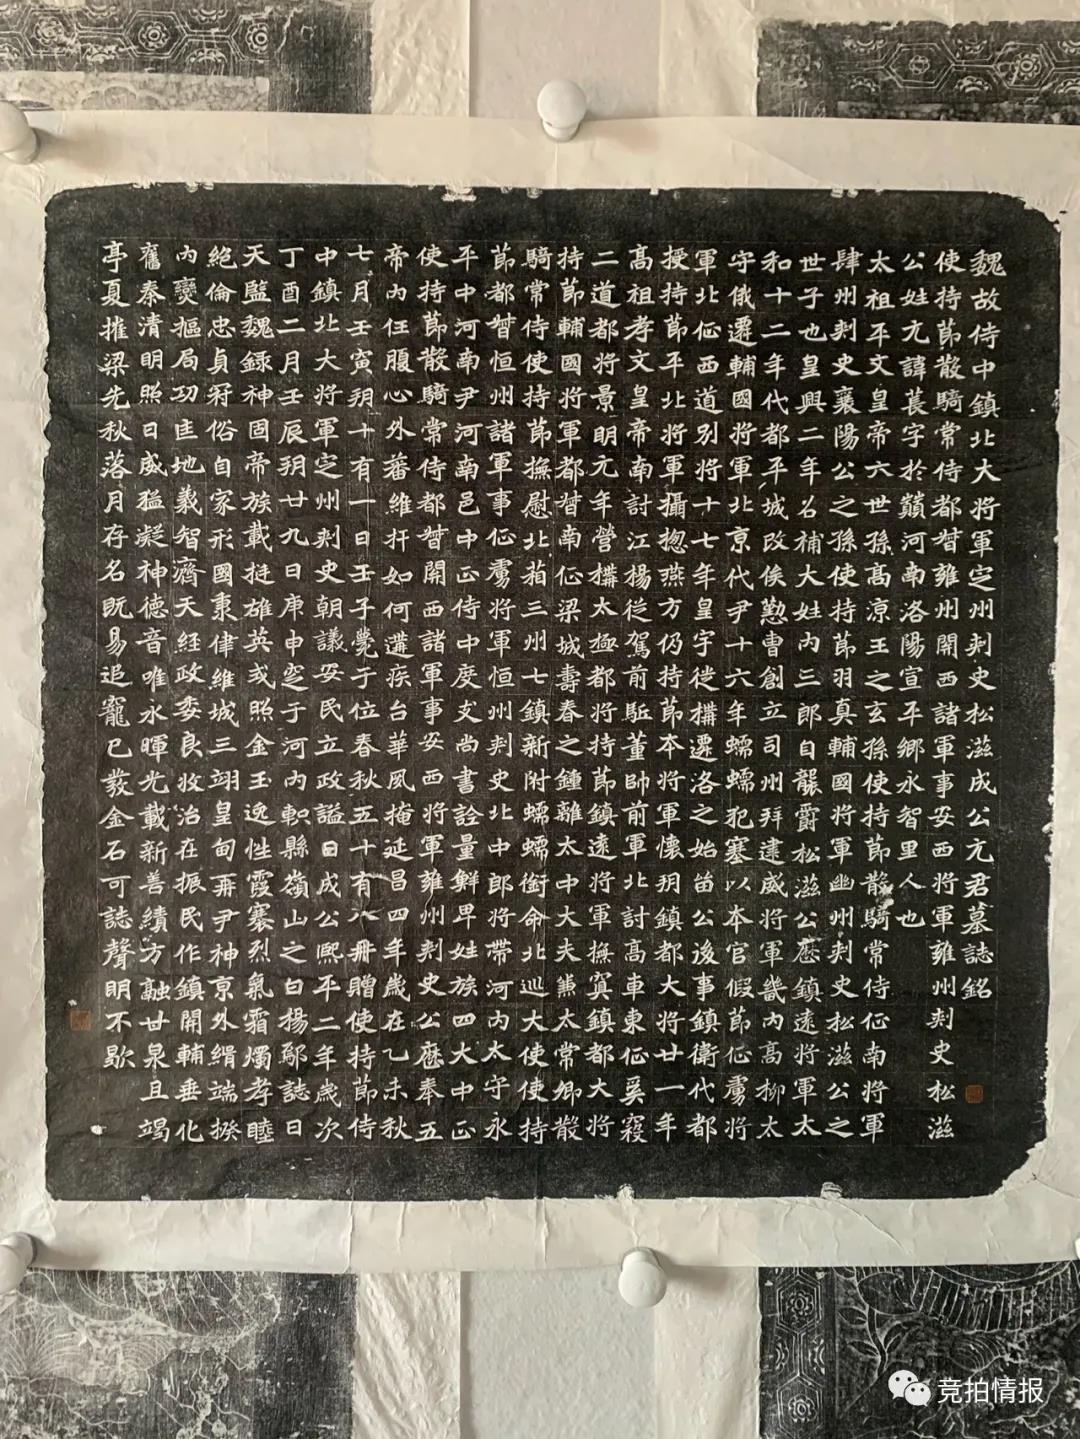 魏故侍中鎮北大將軍定州刺史松滋成公元君墓誌銘
使持節散騎常侍都督雍州開西諸軍事安西將軍雍州刺史松滋
公姓元諱萇字於巔河南洛陽宣平鄉永智里人也
太祖平文皇帝六世孫高涼王之玄孫使持節散騎常侍征南將軍
肆州刺史襄陽公之孫使持節羽真輔國將軍幽州刺史松滋公之
世子也皇興二年名補大姓內三郎自襲爵松滋公歷鎮遠將軍太
和十二年代都平城改俟懃曹創立司州拜建威將軍畿內高柳太
守俄遷輔國將軍北京代尹十六年蠕蠕犯塞以本官假節征虜將
軍北征西道別將十七年皇宇徙構遷洛之始留公後事鎮衛代都
授持節平北將軍攝揔燕方仍持節本將軍懷朔鎮都大將廿一年
高祖孝文皇帝南討江揚從駕前驅董帥前軍北討高車東征奚寇
二道都將景明元年營構太極都將持節鎮遠將軍撫冥鎮都大將
持節輔國將軍都督南征梁城壽春之鍾離太中大夫兼太常卿散
騎常侍使持節撫慰北箱三州七鎮新附蠕蠕銜命北巡大使使持
節都督恒州諸軍事征虜將軍恒州刺史北中郎將帶河內太守永
平中河南尹河南邑中正侍中度支尚書詮量鮮卑姓族四大中正
使持節散騎常侍都督開西諸軍事安西將軍雍州刺史公歷奉五
帝內任腹心外蕃維扞如何遘疾台華風掩延昌四年歲在乙未秋
七月壬寅朔十有一日壬子薨于位春秋五十有八冊贈使持節侍
中鎮北大將軍定州刺史朝議安民立政謚曰成公熙平二年歲次
丁酉二月壬辰朔廿九日庚申窆于河內軹縣嶺山之白楊鄢誌曰
天監魏錄神固帝族載挺雄英或照金玉逸性霞褰烈氣霜燭孝睦
絕倫忠貞冠俗自家形國秉律維城三翊皇甸再尹神京外緝端揆
內變摳局功匡地義智濟天經政委良牧治在振民作鎮開輔垂化
舊秦清明照日威猛凝神德音唯永暉光載新善績方融廿泉且竭
亭夏摧梁先秋落月存名既易追寵已蕟金石可誌聲明不歇
競拍情报